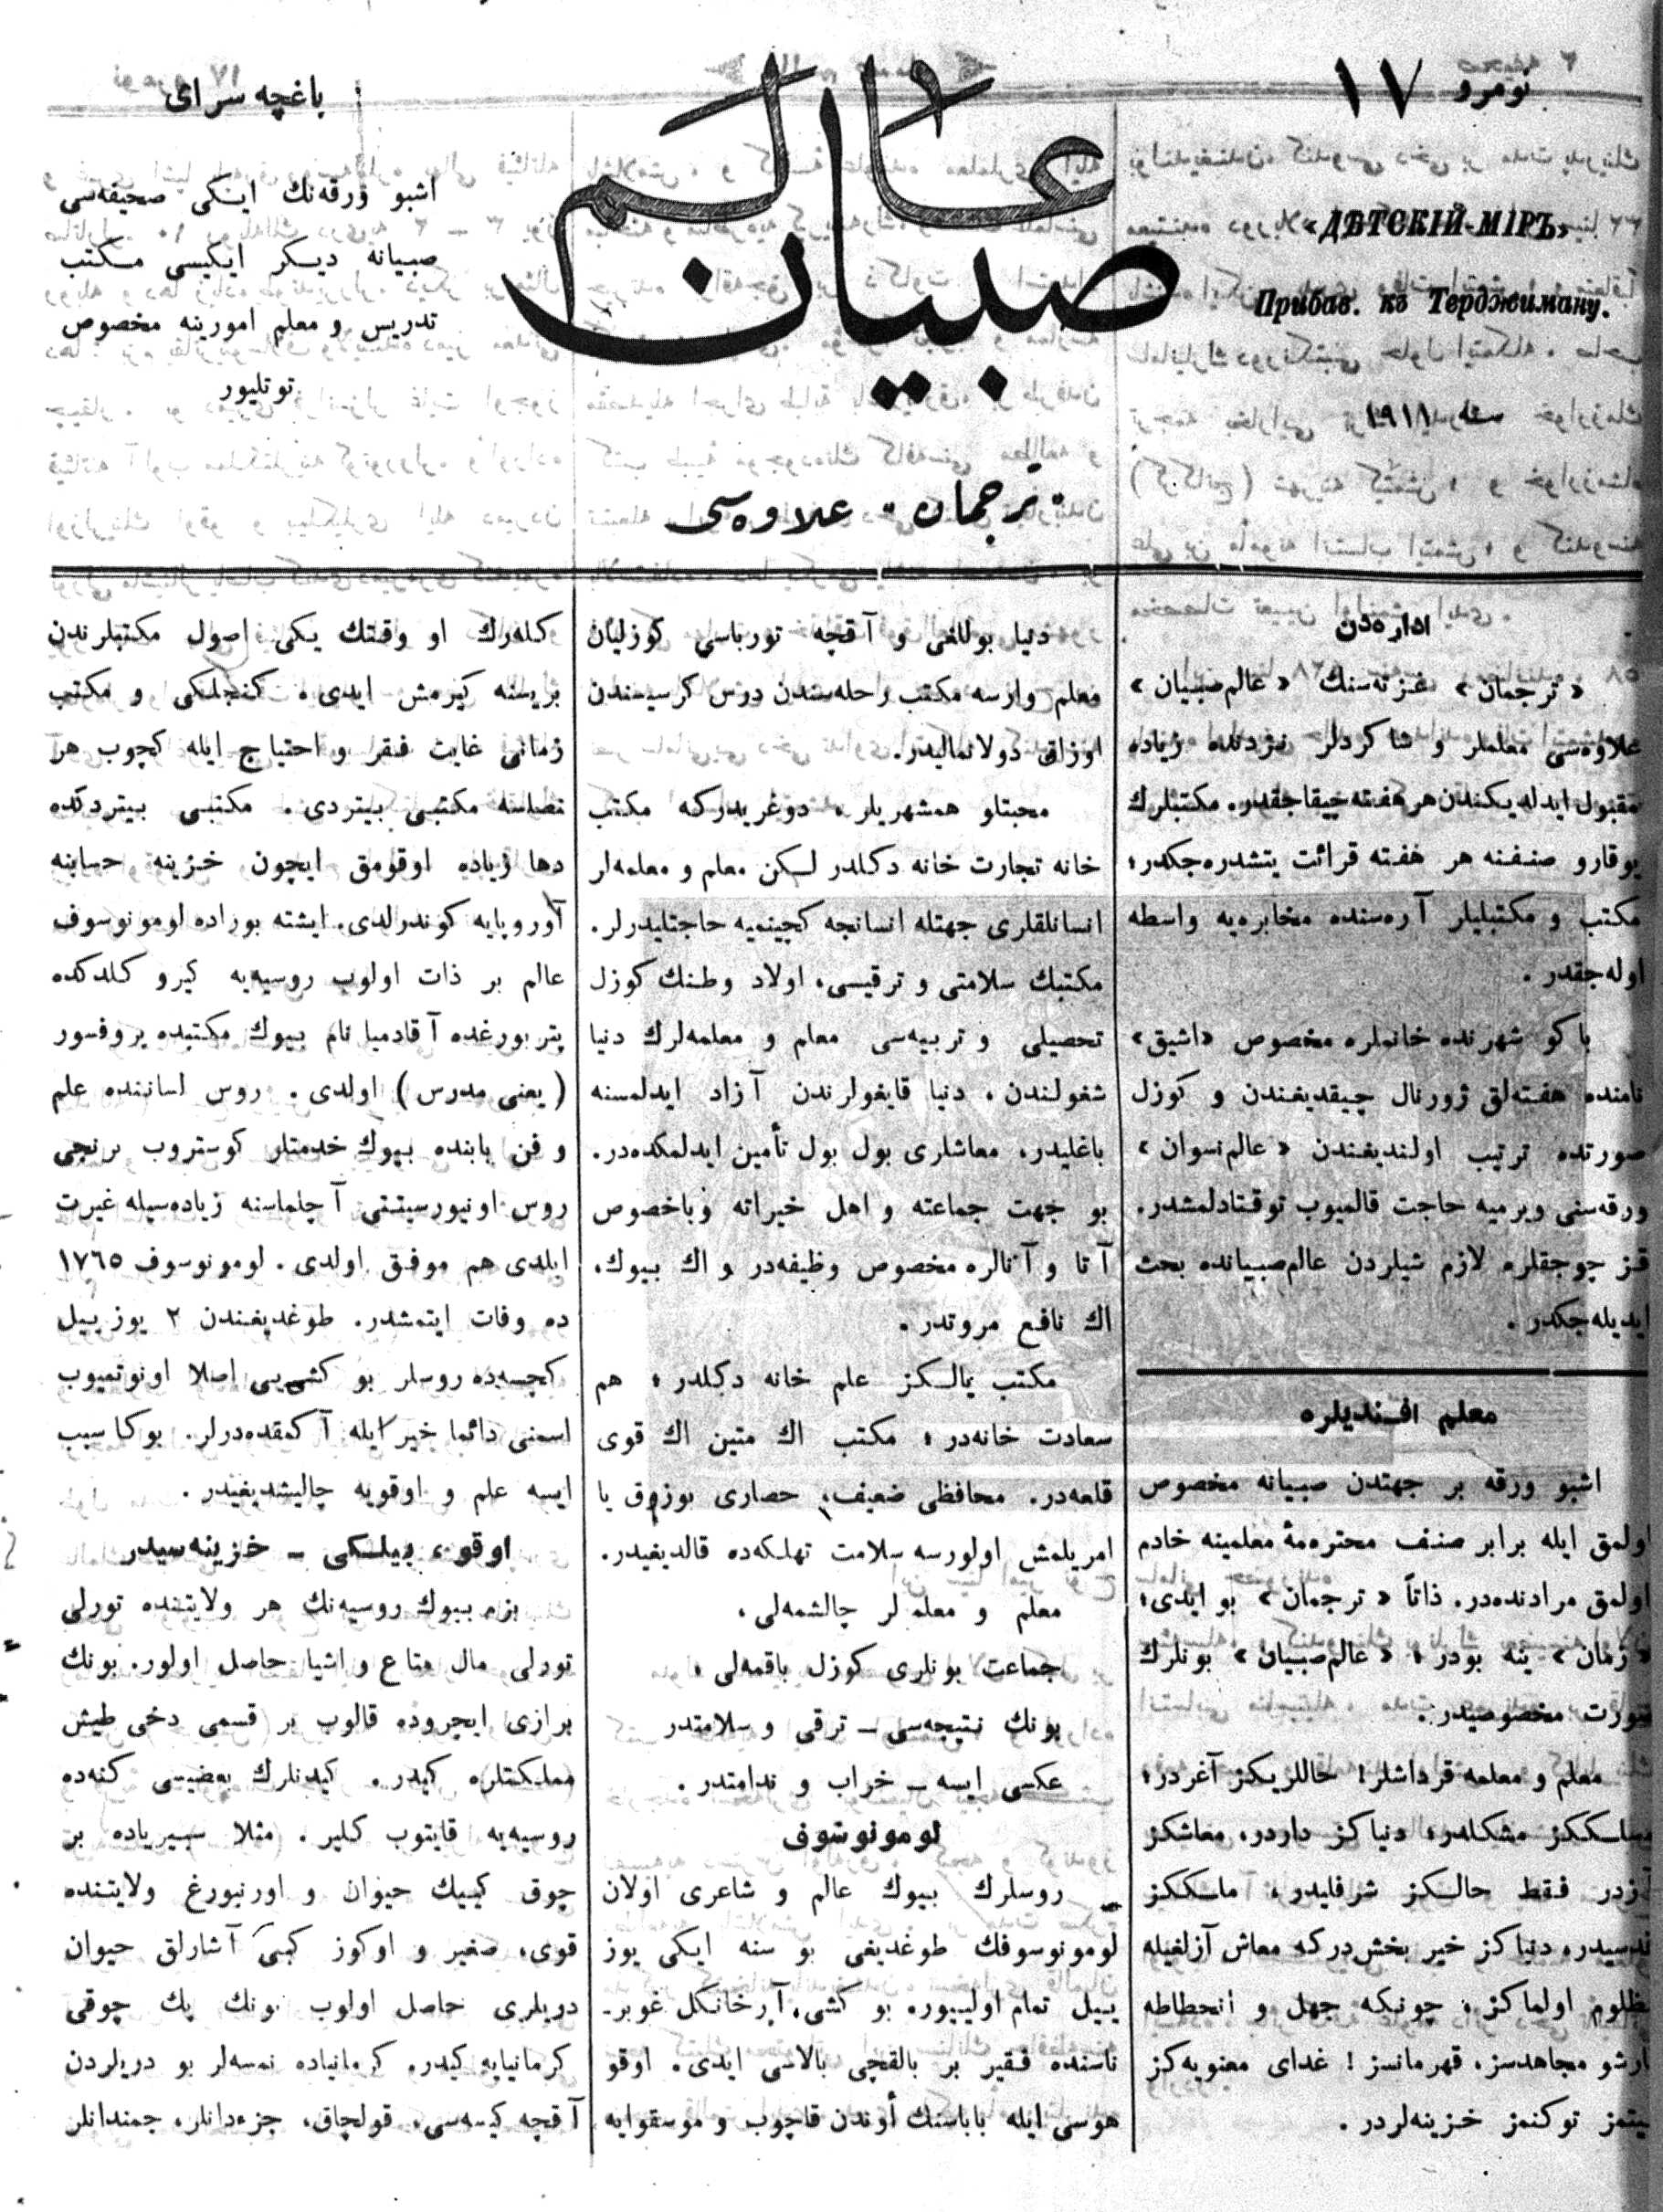 نومرو ١٧
«ДѢТСКІЙ МІРЪ»
Прибав. къ Терджиману.
سنه ١٩١١
عالم
صبیان
«ترجمان» علاوه‌سی
باغچه سرای
اشبو ورقه‌نك ایكی صحیفه‌سی
صبیانه دیكر ایكیسی مكتب
تدریس و معلم امورینه مخصوص
توتلیور
اداره‌دن
«ترجمان» غزته‌سنك «عالم صبیان»
علاوه‌سی معلملر و شاكردلر نزدنده زیاده
مقبول ایدله‌یكندن هر هفته چیقاجقدر. مكتبلرك
یوقارو صنفنه هر هفته قرائت یتشدره‌جكدر؛
مكتب و مكتبلیلر آره‌سنده مخابره‌یه واسطه
اوله‌جقدر.
باكو شهرنده خانملره مخصوص «اشیق»
نامنده هفته‌لق ژورنال چیقدیغندن و كوزل
صورتده ترتیب اولندیغندن «عالم نسوان»
ورقه‌سنی ویرمیه حاجت قالمیوب توقتادلمشدر.
قز چوجقلره لازم شیلردن عالم صبیانده بحث
ایدیله‌جكدر.
معلم افندیلره
اشبو ورقه بر جهتدن صبیانه مخصوص
اولمق ایله برابر صنف محترمهٔ معلمینه خادم
اولمق مرادنده‌در. ذاتاً «ترجمان» بو ایدی؛
«زمان» ینه بودر؛ «عالم صبیان» بونلرك
صورت مخصوصیدر.
معلم و معلمه قرداشلر! حاللریكز آغردر؛
مسلككز مشكلدر؛ دنیاكز داردر، معاشكز
آزدر فقط حالكز شرفلیدر، مسلككز
قدسیدر، دنیاكز خیر بخش‌در كه معاش آزلغیله
مظلوم اولماكز؛ چونكه جهل و انحطاطه
قارشو مجاهدسز، قهرمانسز! غدای معنویه‌كز
بیتمز توكنمز خزینه‌لردر.
دنیا بوللغی و آقچه تورباسی كوزلیان
معلم وارسه مكتب رحله‌سندن درس كرسیسندن
اوزاق دولانمالیدر.
محبتلو همشهریلر، دوغریدركه مكتب
خانه تجارت خانه دكلدر لكن معلم و معلمه‌لر
انسانلقلری جهتله انسانجه كچینمیه حاجتلیدرلر.
مكتبك سلامتی و ترقیسی، اولاد وطنك كوزل
تحصیلی و تربیه‌سی معلم و معلمه‌لرك دنیا
شغولندن، دنیا قایغولرندن آزاد ایدلمسنه
باغلیدر، معاشلری بول بول تأمین ایدلمكده‌در.
بو جهت جماعته و اهل خیراته و باخصوص
آتا و آنالره مخصوص وظیفه‌در و اك بیوك،
اك نافع مروتدر.
مكتب یالكز علم خانه دكلدر؛ هم
سعادت خانه‌در؛ مكتب اك متین اك قوی
قلعه‌در. محافظی ضعیف، حصاری بوزوق یا
امریلمش اولورسه سلامت تهلكه‌ده قالدیغیدر.
معلم و معلمه‌لر چالشمه‌لی،
جماعت بونلری كوزل باقمه‌لی؛
بونك نتیجه‌سی ـ ترقی و سلامتدر
عكسی ایسه ـ خراب و ندامتدر.
لومونوسوف
روسلرك بیوك عالم و شاعری اولان
لومونوسوفك طوغدیغی بو سنه ایكی یوز
ییل تمام اولییور. بو كشی، آرخانكل غوبر-
ناسنده فقیر بر بالقچی بالاسی ایدی. اوقو
هوسی ایله باباسنك أوندن قاچوب و موسقوایه
كله‌رك او وقتك یكی اصول مكتبلرندن
بریسنه كیرمش ایدی. كنجلكی و مكتب
زمانی غایت فقر و احتیاج ایله كچوب هر
نصلسه مكتبی بیتردی. مكتبی بیتردكده
دها زیاده اوقومق ایچون خزینه حسابنه
آوروپایه كوندرلدی. ایشته بوراده لومونوسوف
عالم بر ذات اولوب روسیه‌یه كیرو كلدكده
پتربورغده آقادمیا نام بیوك مكتبده پروفسور
(یعنی مدرس) اولدی. روس لساننده علم
و فن بابنده بیوك خدمتلر كوستروب برنجی
روس اونیورسیتتی آچلماسنه زیاده‌سیله غیرت
ایلدی هم موفق اولدی. لومونوسوف ١٧٦٥
ده وفات ایتمشدر. طوغدیغندن ٢ یوز ییل
كچسه‌ده روسلر بو كشی‌یی اصلا اونوتمیوب
اسمنی دائما خیر ایله آكمقده‌درلر. بوكا سبب
ایسه علم و اوقویه چالیشدیغیدر.
اوقو، بیلكی ـ خزینه‌سیدر
بزم بیوك روسیه‌نك هر ولایتنده تورلی
تورلی مال متاع و اشیا حاصل اولور. بونك
برازی ایچروده قالوب بر قسمی دخی طیش
مملكتلره كیدر. كیدنلرك بعضیسی كنه‌ده
روسیه‌یه قایتوب كلیر. مثلا سبیریاده بر
چوق كییك حیوان و اورنبورغ ولایتنده
قوی، صغیر و اوكوز كبی آشارلق حیوان
دریلری حاصل اولوب بونك پك چوقی
كرمانیایه كیدر. كرمانیاده نمسه‌لر بو دریلردن
آقچه كیسه‌سی، قولچاق، جزءدانلر، چمندانلر